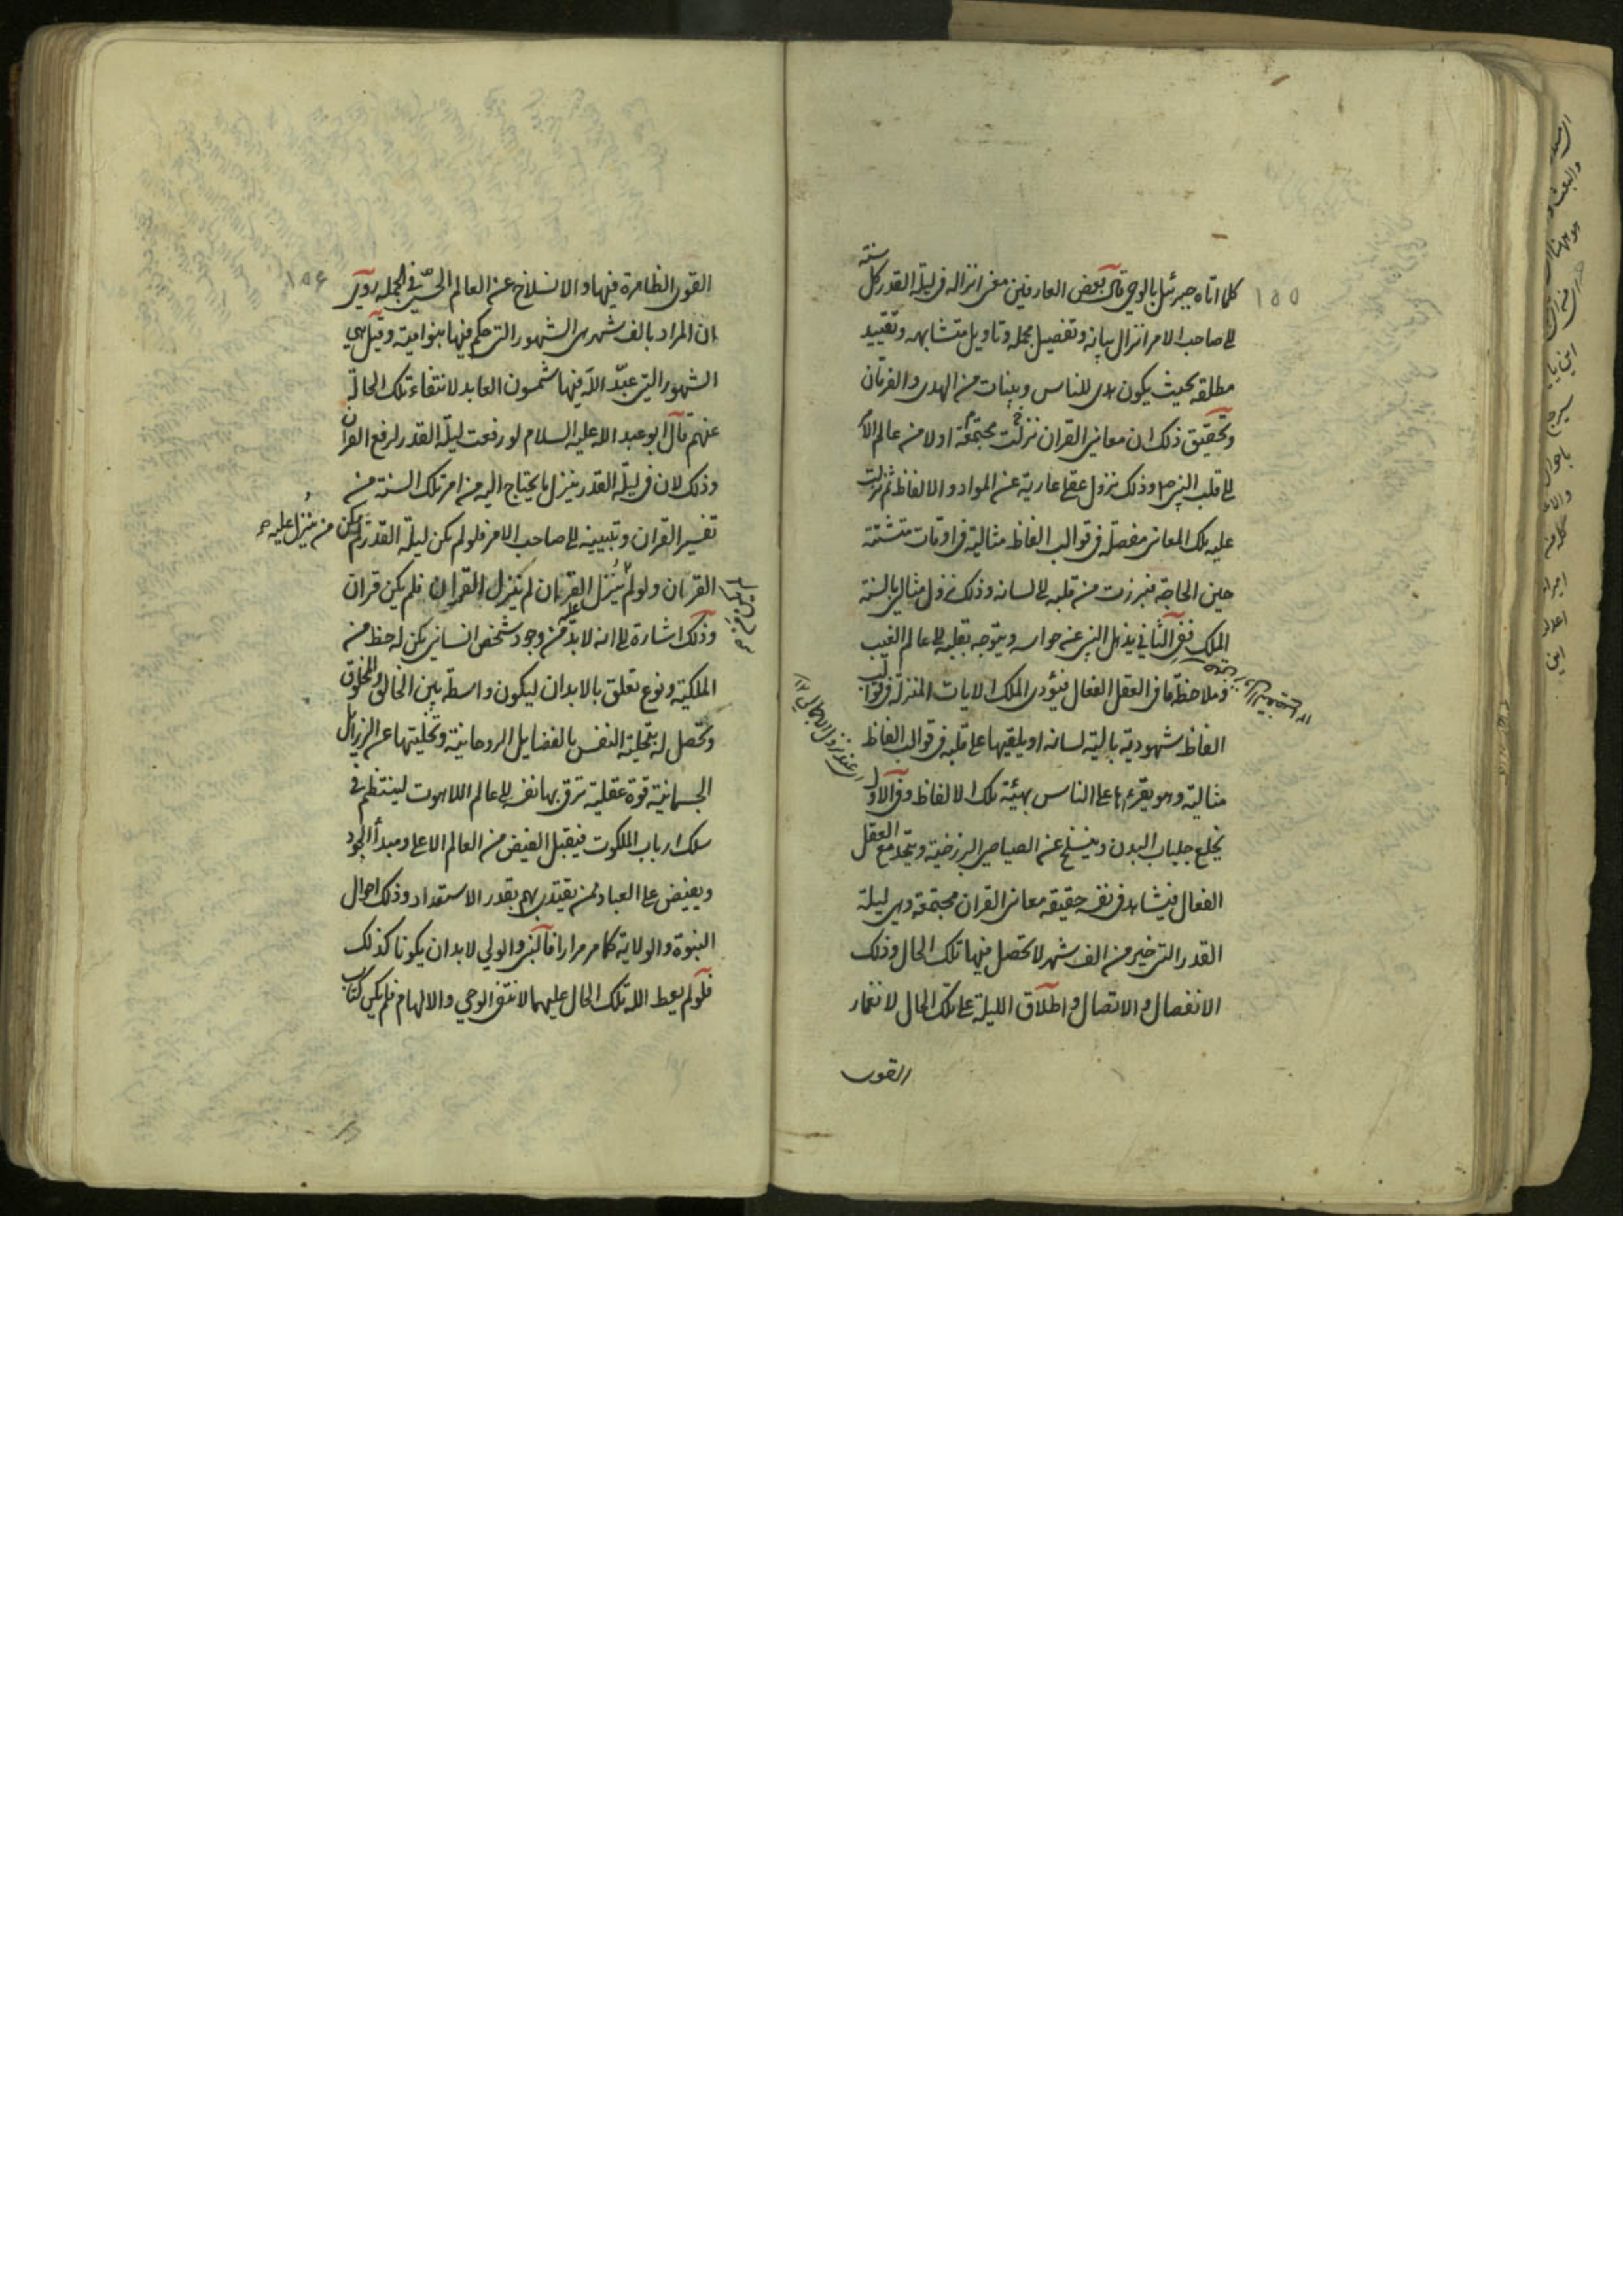 ١٥٥
كلما اتاه جبرئيل بالوحي قال بعض العارفين معنى انزاله في ليلة القدر كل سنة
الى صاحب الامر انزال بيانه وتفصيل مجمله وتاويل متشابهه وتقييد
مطلقه بحيث يكون هدى للناس وبينات من الهدى والفرقان
وتحقيق ذلك ان معاني القران نزلت مجتمعة اولا من عالم الامر
الى قلب النبي ص وذلك نزول عقلي عارية عن المواد والالفاظ ثم نزلت
عليه تلك المعاني مفصلة في قوالب الفاظ مثالية في اوقات متشتتة
حين الحاجة فبرزت من قلبه الى لسانه وذلك نزول مثالي بالسنة
الملك ففي الثاني يذهل النبي عنه حواسه ويتوجه بقلبه الى عالم الغيب
وملاحظة ما في العقل الفعال فيؤدى الملك الايات المنزلة في قوالب
الفاظ شهودية بالية لسانه او يلقيها على قلبه في قوالب الفاظ
مثالية وهو يقرءها على الناس بهيئة تلك الالفاظ وفي الاول
يخلع جلباب البدن وينسلخ عن الصياصي البرزخية ويتحد مع العقل
الفعال فيشاهد في نفسه حقيقة معاني القران مجتمعة وهي ليلة
القدر التي خير من الف شهر لا تحصل فيها تلك الحال وذلك
الانفصال والاتصال واطلاق الليلة على تلك الحال لانغمار
القوى
١٥٤
القوى الظاهرة فيها والانسلاخ عن العالم الحسي في الجملة روى
ان المراد بالف شهر هي الشهور التي حكم فيها بنو امية وقيل هي
الشهور التي عبد الله فيها شمسون العابد لانتفاء تلك الحالة
عنهم قال ابو عبد الله عليه السلام لو رفعت ليلة القدر لرفع القران
وذلك لان في ليلة القدر ينزل ما يحتاج اليه من امر تلك السنة من
تفسير القران وتبيينه الى صاحب الامر فلو لم تكن ليلة القدر لم يكن من ينزل عليه
القران ولو لم ينزل القران لم ينزل القران فلم يكن قران
وذلك اشارة الى انه لا بد من وجود شخص انساني يكن له حظ من
الملكية ونوع تعلق بالابدان ليكون واسطة بين الخالق والمخلوق
وتحصل له بتحلية النفس بالفضايل الروحانية وتخليتها عن الرزايل
الجسمانية قوة عقلية ترقى بها نفسه الى عالم اللاهوت لينتظم في
سلك ارباب الملكوت فيقبل الفيض من العالم الاعلى ومبدأ الجود
ويفيض على العباد ممن يقتدى بهم بقدر الاستعداد وذلك احوال
النبوة والولاية كما مر مرارا فالنبي والولي لا بد ان يكونا كذلك
فلو لم يعط الله تلك الحال عليهما لانتفى الوحي والالهام فلم يكن كتاب